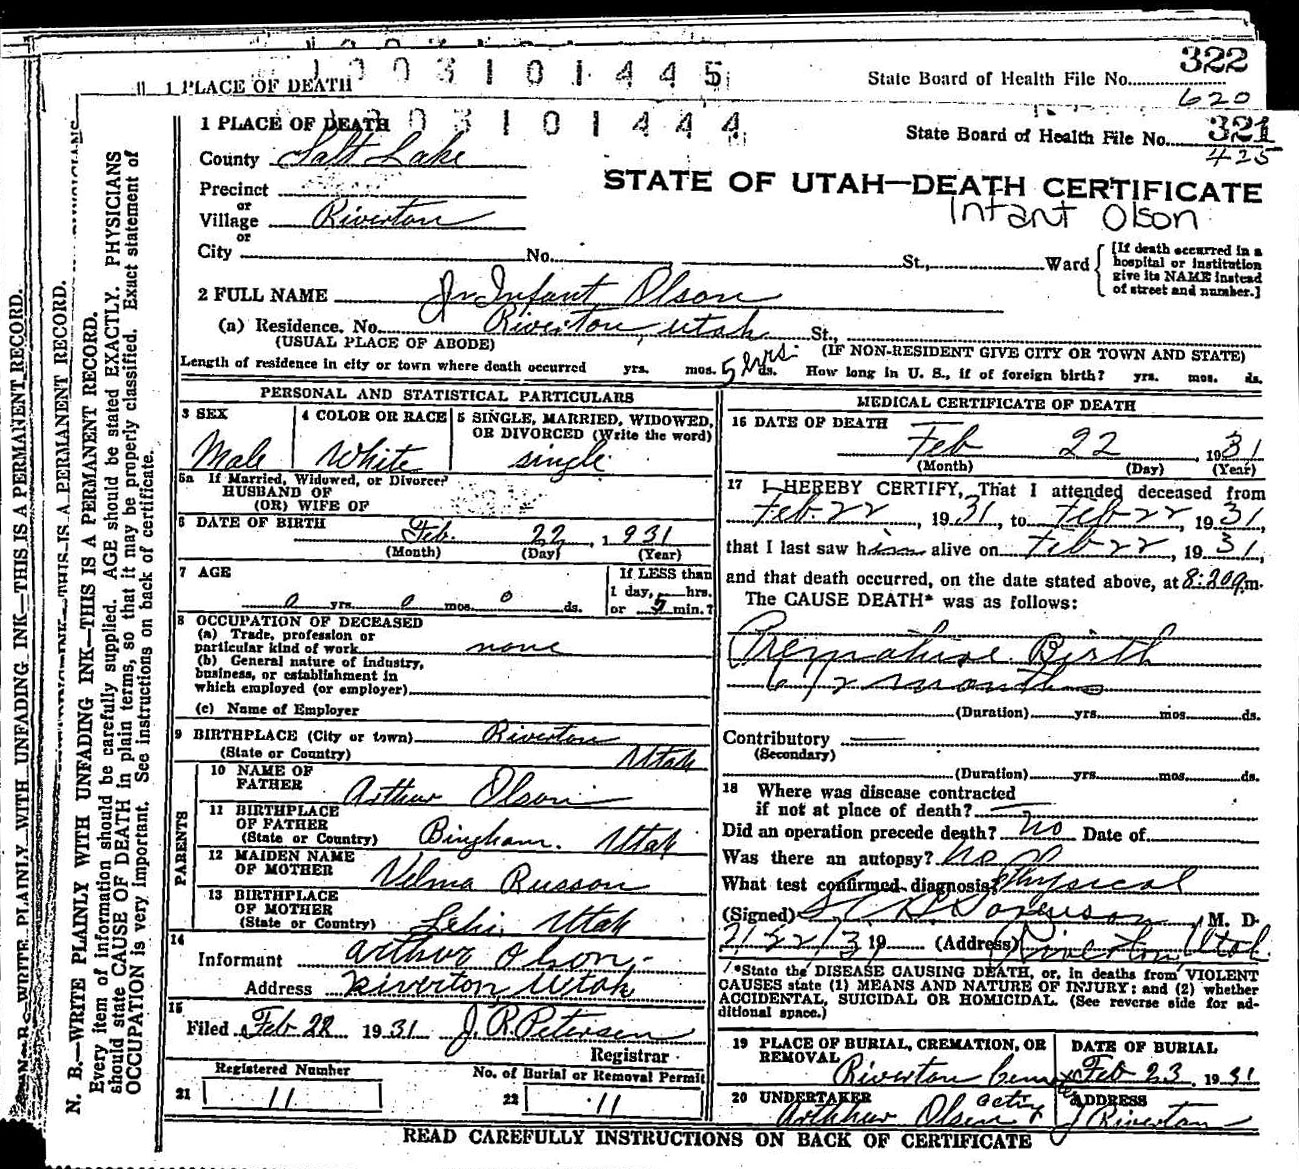 1003101445
322
1 PLACE OF DEATH
State Board of Health File No.
620
1003101444
1 PLACE OF DEATH
State Board of Health File No. 321
425
County Salt Lake
STATE OF UTAH—DEATH CERTIFICATE
Infant Olson
Precinct
or
Village Riverton
or
City No. St., Ward
[If death occurred in a
hospital or institution
give its NAME instead
of street and number.]
2 FULL NAME Jr Infant Olson
(a) Residence. No. Riverton, Utah St.,
(USUAL PLACE OF ABODE) (IF NON-RESIDENT GIVE CITY OR TOWN AND STATE)
Length of residence in city or town where death occurred yrs. mos. 5 hrs. ds. How long in U. S., if of foreign birth? yrs. mos. ds.
PERSONAL AND STATISTICAL PARTICULARS
3 SEX
Male
4 COLOR OR RACE
White
5 SINGLE, MARRIED, WIDOWED,
OR DIVORCED (Write the word)
single
5a If Married, Widowed, or Divorced?
HUSBAND OF
(OR) WIFE OF
6 DATE OF BIRTH Feb. 22, 1931
(Month) (Day) (Year)
7 AGE
0 yrs. 0 mos. 0 ds.
If LESS than
1 day, 5 hrs.
or 5 min.?
8 OCCUPATION OF DECEASED
(a) Trade, profession or
particular kind of work none
(b) General nature of industry,
business, or establishment in
which employed (or employer)
(c) Name of Employer
9 BIRTHPLACE (City or town) Riverton
(State or Country) Utah
PARENTS
10 NAME OF
FATHER Arthur Olson
11 BIRTHPLACE
OF FATHER
(State or Country) Bingham. Utah
12 MAIDEN NAME
OF MOTHER Velma Russon
13 BIRTHPLACE
OF MOTHER
(State or Country) Lehi, Utah
14
Informant Arthur Olson
Address Riverton Utah
15
Filed Feb 22 1931 J. R. Petersen
Registrar
Registered Number
21 11
No. of Burial or Removal Permit
22 11
MEDICAL CERTIFICATE OF DEATH
16 DATE OF DEATH
Feb 22, 1931
(Month) (Day) (Year)
17 I HEREBY CERTIFY, That I attended deceased from
Feb. 22, 1931, to Feb 22, 1931,
that I last saw him alive on Feb 22, 1931,
and that death occurred, on the date stated above, at 8:20 m.
The CAUSE DEATH* was as follows:
Premature Birth
6 1/2 months
(Duration) yrs. mos. ds.
Contributory
(Secondary)
(Duration) yrs. mos. ds.
18 Where was disease contracted
if not at place of death?
Did an operation precede death? No Date of
Was there an autopsy? No
What test confirmed diagnosis? Physical
(Signed) Sorenson, M. D.
2/22/31 19 (Address) Riverton Utah
*State the DISEASE CAUSING DEATH, or, in deaths from VIOLENT
CAUSES state (1) MEANS AND NATURE OF INJURY: and (2) whether
ACCIDENTAL, SUICIDAL OR HOMICIDAL. (See reverse side for ad-
ditional space.)
19 PLACE OF BURIAL, CREMATION, OR
REMOVAL
Riverton Cemetery
DATE OF BURIAL
Feb 23 1931
20 UNDERTAKER
Arthur Olsen acting
ADDRESS
Riverton
READ CAREFULLY INSTRUCTIONS ON BACK OF CERTIFICATE
N. B.—WRITE PLAINLY WITH UNFADING INK—THIS IS A PERMANENT RECORD.
Every item of information should be carefully supplied. AGE should be stated EXACTLY. PHYSICIANS
should state CAUSE OF DEATH in plain terms, so that it may be properly classified. Exact statement of
OCCUPATION is very important. See instructions on back of certificate.
THIS IS A PERMANENT RECORD.
WRITE PLAINLY WITH UNFADING INK—THIS IS A PERMANENT RECORD.